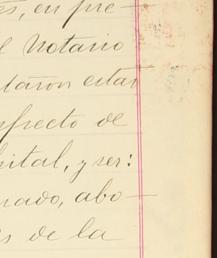 es, en pre-
el Notario
taron estar
fecto de
pital, y ser:
nado, abo-
s de la